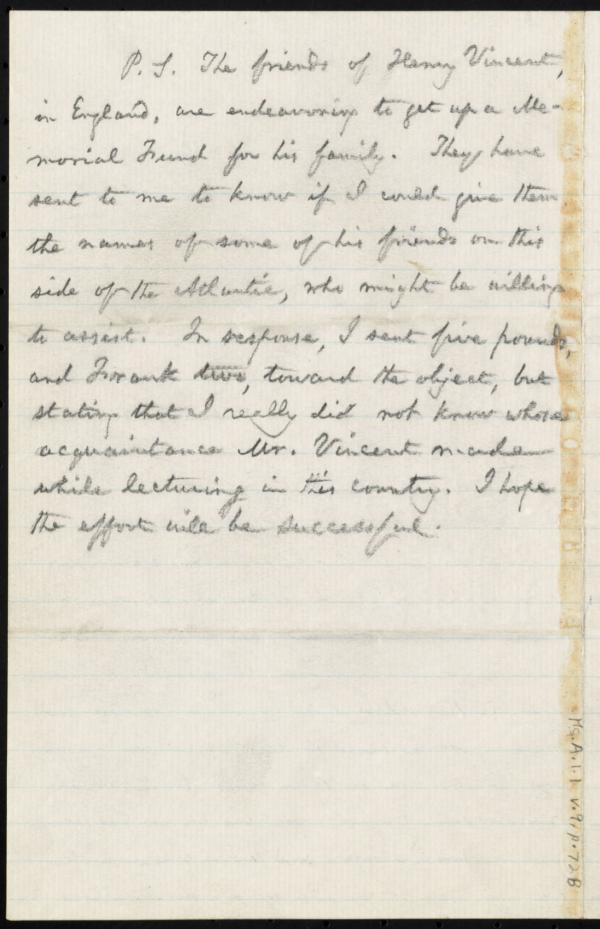 P. S. The friends of Henry Vincent,
in England, are endeavoring to get up a Me-
morial Fund for his family. They have
sent to me to know if I could give them
the names of some of his friends on this
side of the Atlantic, who might be willing
to assist. In response, I sent five pounds,
and Frank two, toward the object, but
stating that I really did not know whose
acquaintance Mr. Vincent made
while lecturing in this country. I hope
the effort will be successful.
Ms.A.1.1 v.9, p.72B